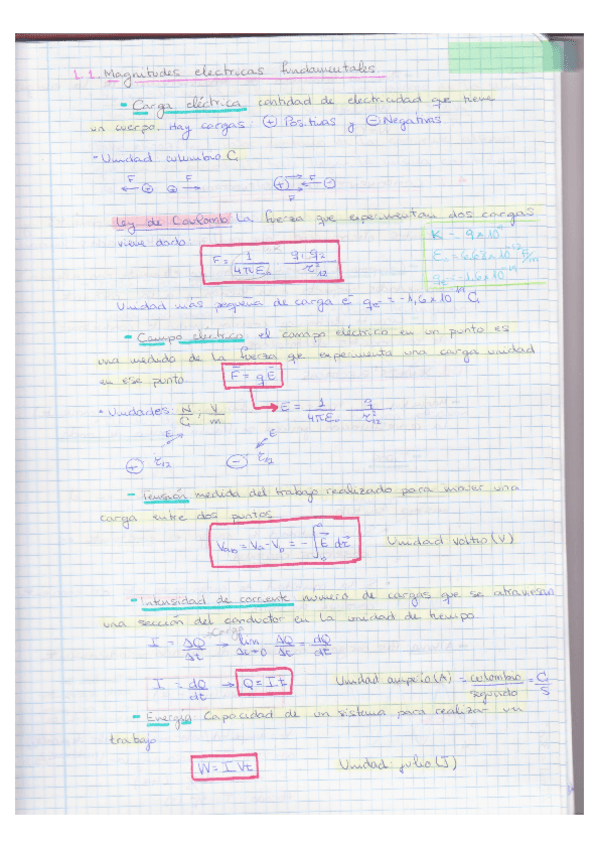 1.1. Magnitudes electricas fundamentales
- Carga eléctrica cantidad de electricidad que tiene
un cuerpo. Hay cargas: ⊕ Positivas y ⊖ Negativas
- Unidad culumbio C
F F F F
Ley de Coulomb La fuerza que experimentan dos cargas
viene dado
K = 9 x 10⁹
F = 1/4πε₀ q₁ q₂/r²₁₂
qe = -1,6 x 10⁻¹⁹
Unidad más pequeña de carga e⁻ qe = -1,6 x 10⁻¹⁹ C
- Campo eléctrico el campo eléctrico en un punto es
una medida de la fuerza que experimenta una carga unidad
en ese punto F = qE
- Unidades: N/C, V/m E = 1/4πε₀ q/r²₁₂
E E
⊕ r₁₂ ⊖ r₁₂
- Tensión medida del trabajo realizado para mover una
carga entre dos puntos
Vab = Va - Vb = - ∫ E dr Unidad voltio (V)
- Intensidad de corriente número de cargas que se atraviesan
una sección del conductor en la unidad de tiempo
I = ΔQ/Δt → lim Δt→0 ΔQ/Δt = dQ/dt
I = dQ/dt → Q = I t Unidad amperio (A) = culombio/segundo = C/S
- Energía Capacidad de un sistema para realizar un
trabajo
W = I V t Unidad: julio (J)